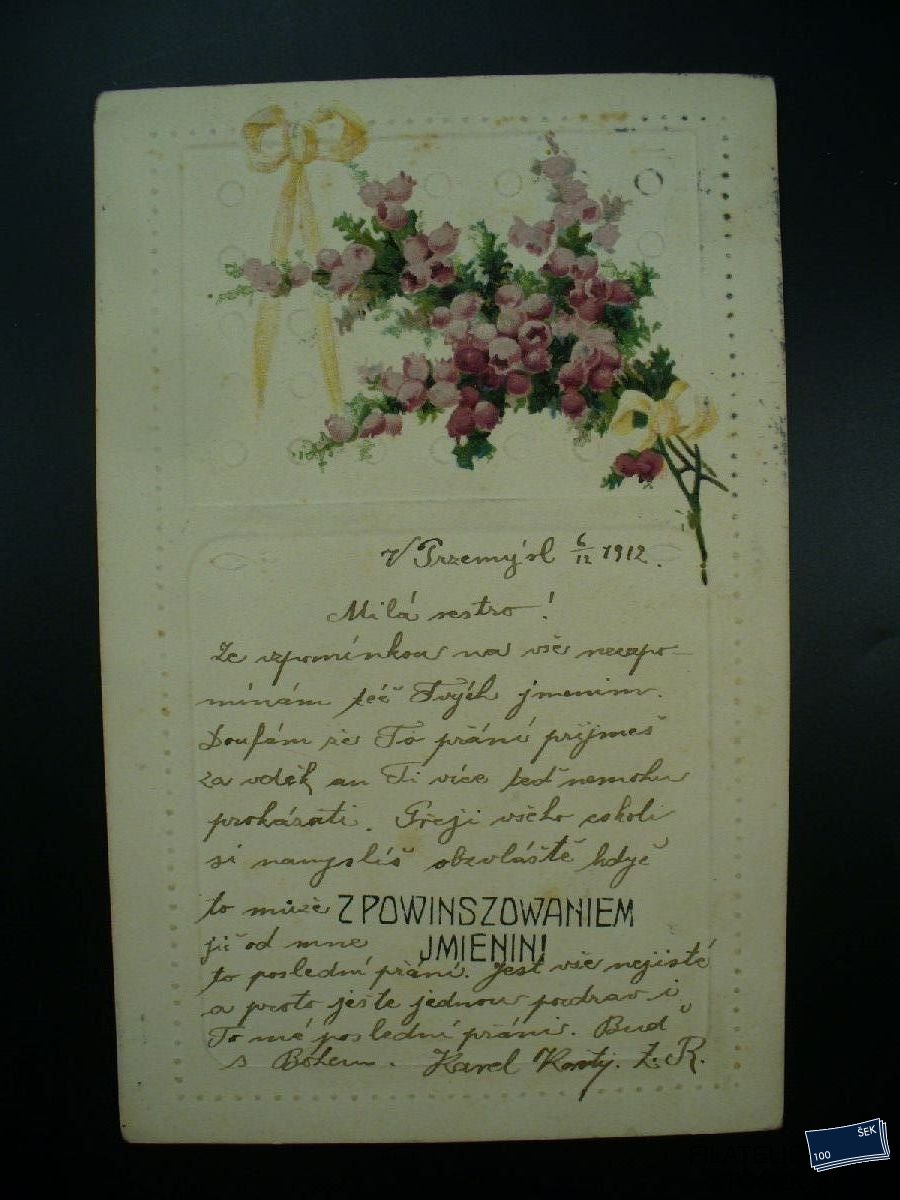 V Przemýsl 6/12 1912.
Milá sestro!
Ze vzpomínkou na vše nezapo-
mínám též Tvých jmenin.
Doufám že To přání přijmeš
za vděk an Ti více teď nemohu
prokázati. Přeji všeho cokoli
si namyslíš obzvláště když
to může
Z POWINSZOWANIEM
již od mne
JMIENIN!
to poslední přání. Jest vše nejisté
a proto ješte jednou pozdrav i
To mé poslední přání. Buď
s Bohem. Karel Z. R.
100 ŠEK